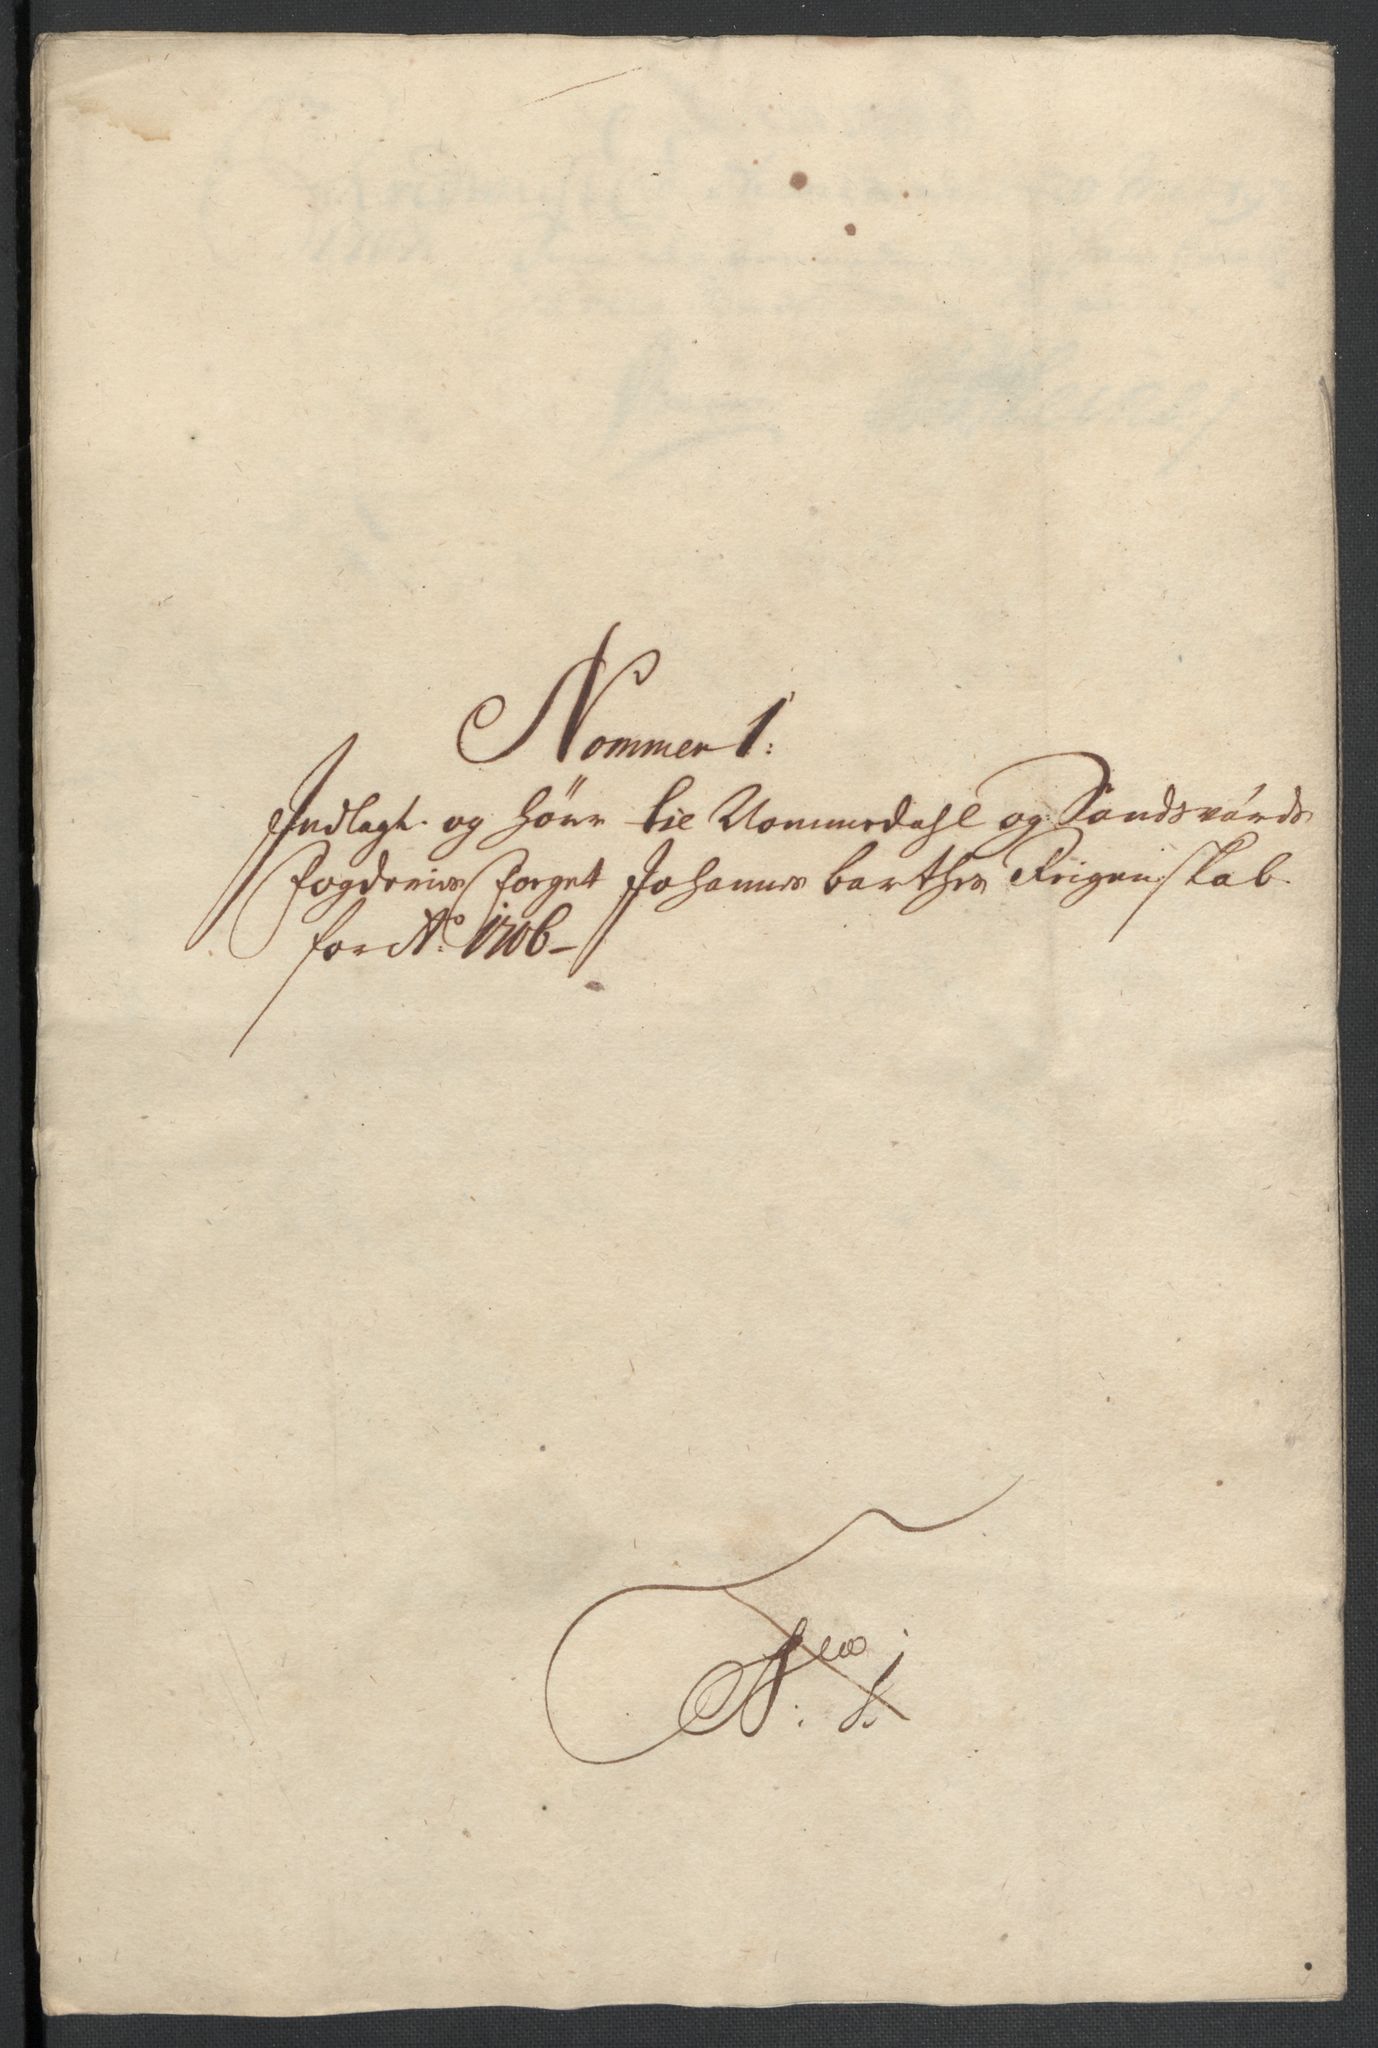 Nommer 1:
Indlagt og hörer til Nommedahl og Sandsværds
fogderies foeget Johannes barthes Reigenskab
for Ao: 1706 –
No. 1.